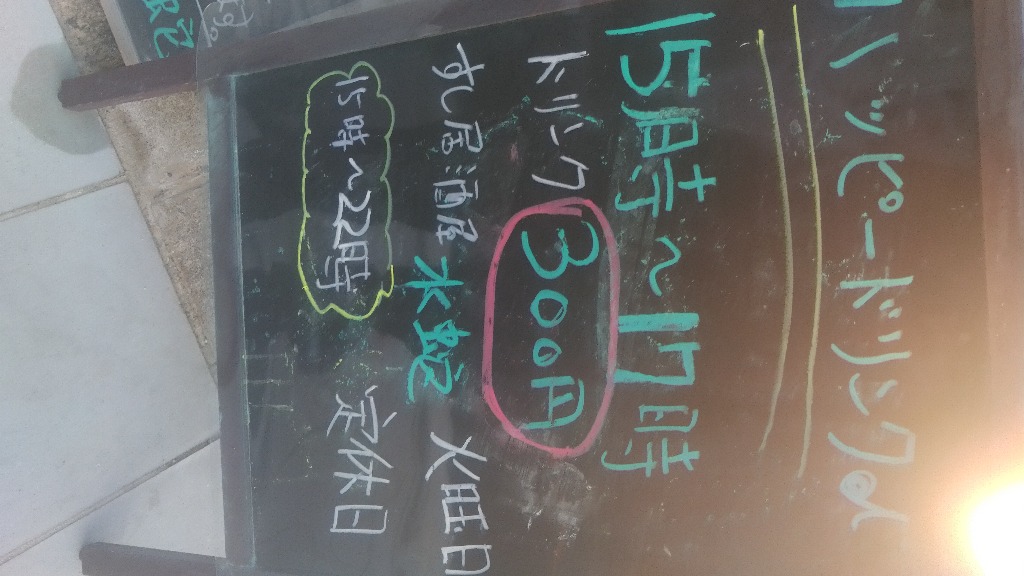 ハッピードリンク
15時～17時
ドリンク 300円
すし居酒屋 水蛇 火曜日
15時～22時 定休日